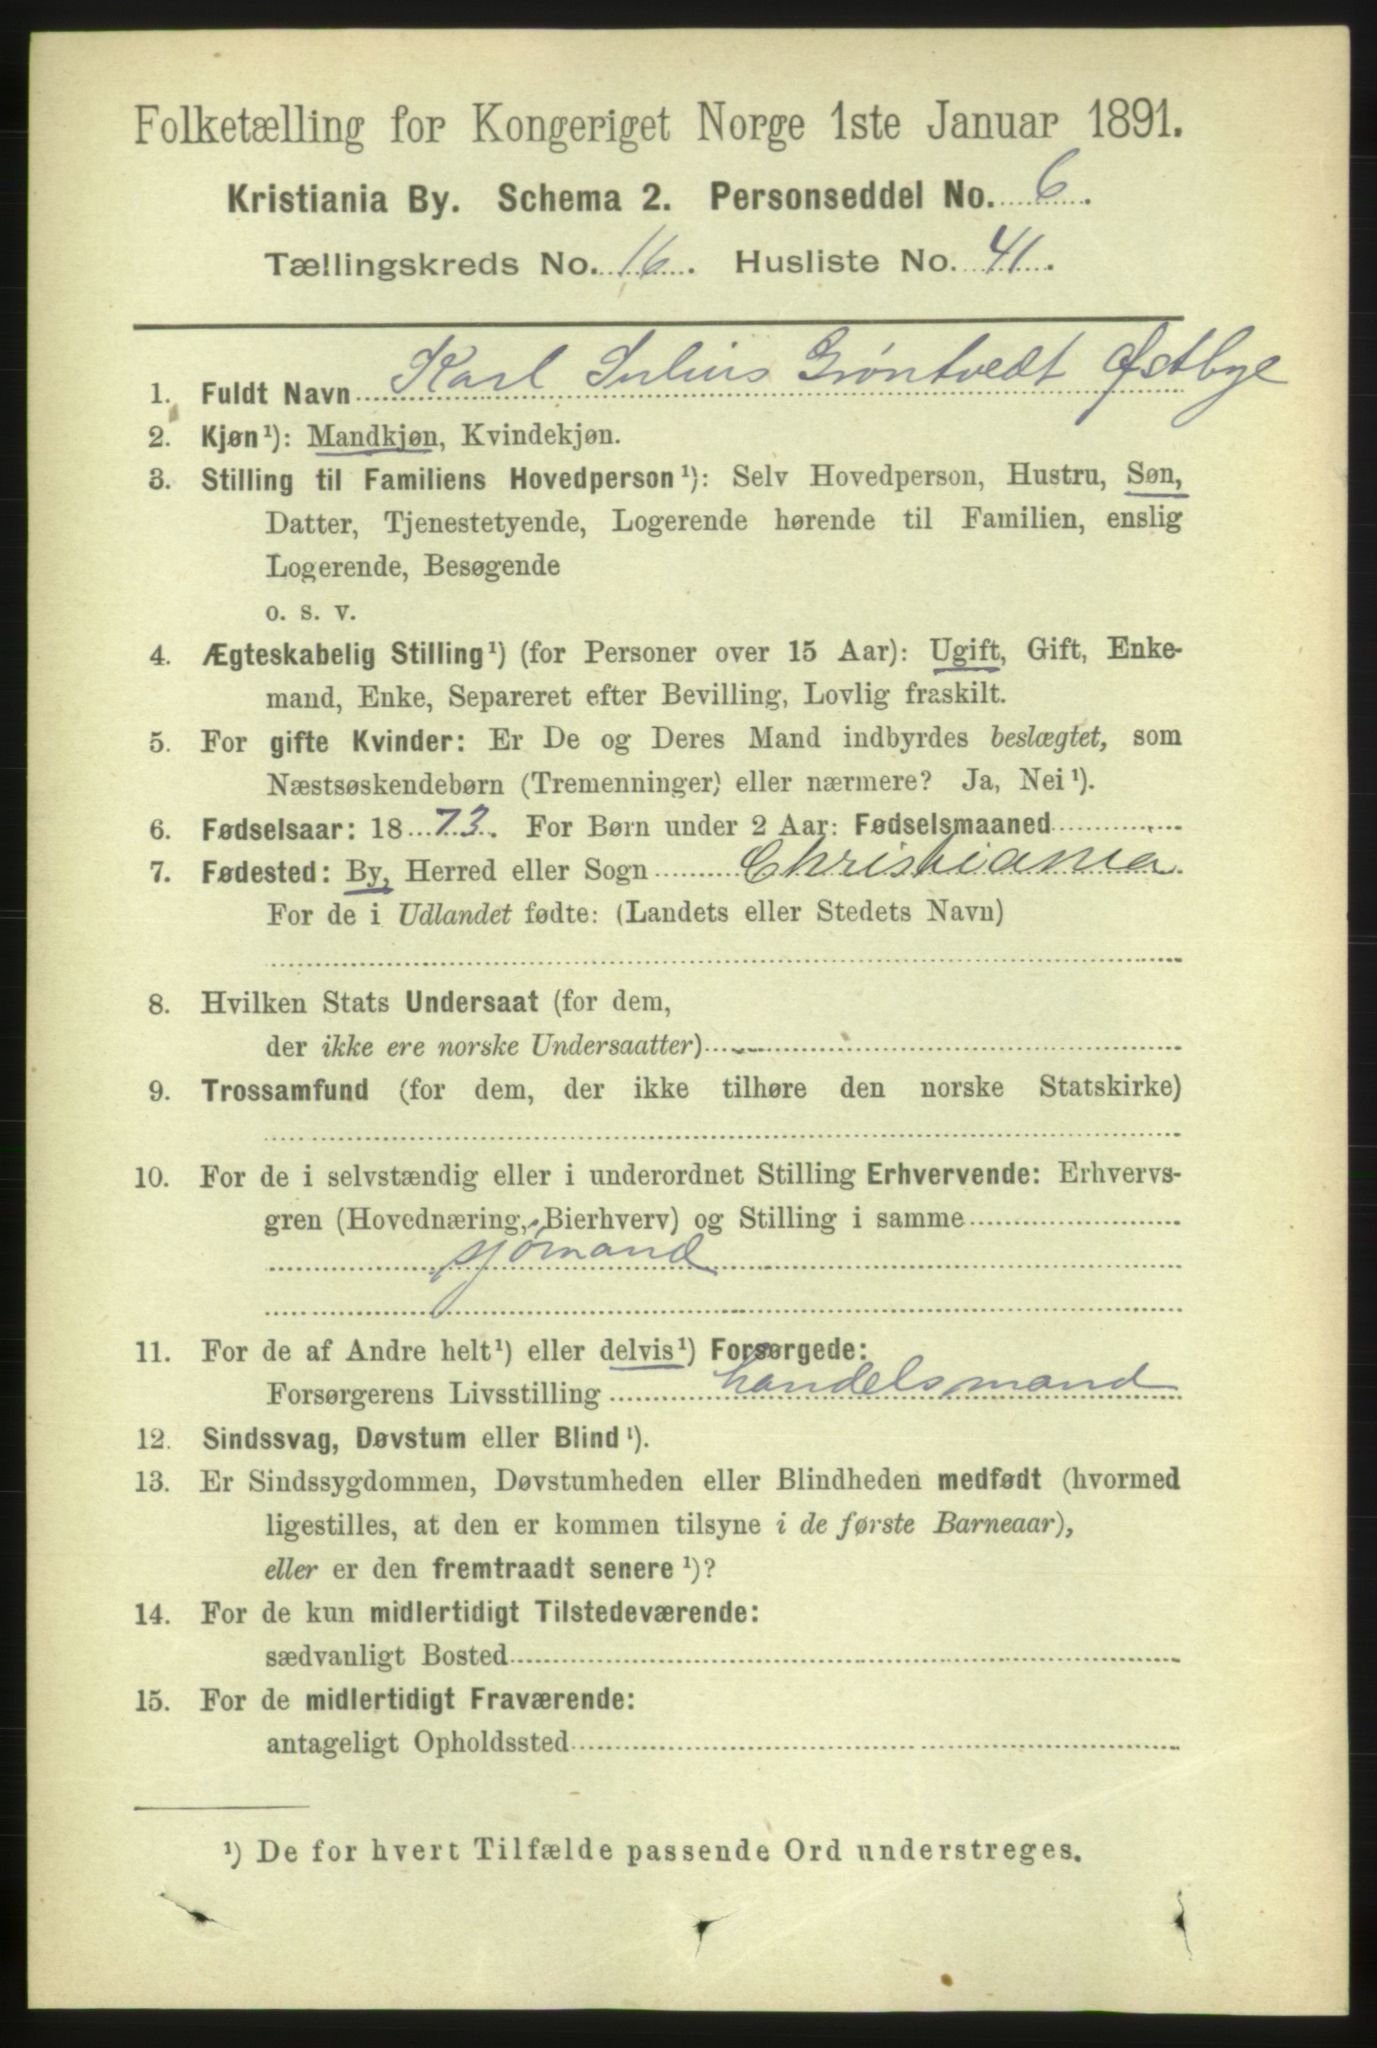 Folketælling for Kongeriget Norge 1ste Januar 1891.
Kristiania By. Schema 2. Personseddel No. 6.
Tællingskreds No. 16. Husliste No. 41.
1. Fuldt Navn Karl Julius Grøntvedt Østbye
2. Kjøn¹): Mandkjøn, Kvindekjøn.
3. Stilling til Familiens Hovedperson¹): Selv Hovedperson, Hustru, Søn,
Datter, Tjenestetyende, Logerende hørende til Familien, enslig
Logerende, Besøgende
o. s. v.
4. Ægteskabelig Stilling¹) (for Personer over 15 Aar): Ugift, Gift, Enke-
mand, Enke, Separeret efter Bevilling, Lovlig fraskilt.
5. For gifte Kvinder: Er De og Deres Mand indbyrdes beslægtet, som
Næstsøskendebørn (Tremenninger) eller nærmere? Ja, Nei¹).
6. Fødselsaar: 1873. For Børn under 2 Aar: Fødselsmaaned
7. Fødested: By, Herred eller Sogn Christiania.
For de i Udlandet fødte: (Landets eller Stedets Navn)
8. Hvilken Stats Undersaat (for dem,
der ikke ere norske Undersaatter)
9. Trossamfund (for dem, der ikke tilhøre den norske Statskirke)
10. For de i selvstændig eller i underordnet Stilling Erhvervende: Erhvervs-
gren (Hovednæring, Bierhverv) og Stilling i samme
sjømand
11. For de af Andre helt¹) eller delvis¹) Forsørgede:
Forsørgerens Livsstilling handelsmand
12. Sindssvag, Døvstum eller Blind¹).
13. Er Sindssygdommen, Døvstumheden eller Blindheden medfødt (hvormed
ligestilles, at den er kommen tilsyne i de første Barneaar),
eller er den fremtraadt senere¹)?
14. For de kun midlertidigt Tilstedeværende:
sædvanligt Bosted
15. For de midlertidigt Fraværende:
antageligt Opholdssted
¹) De for hvert Tilfælde passende Ord understreges.